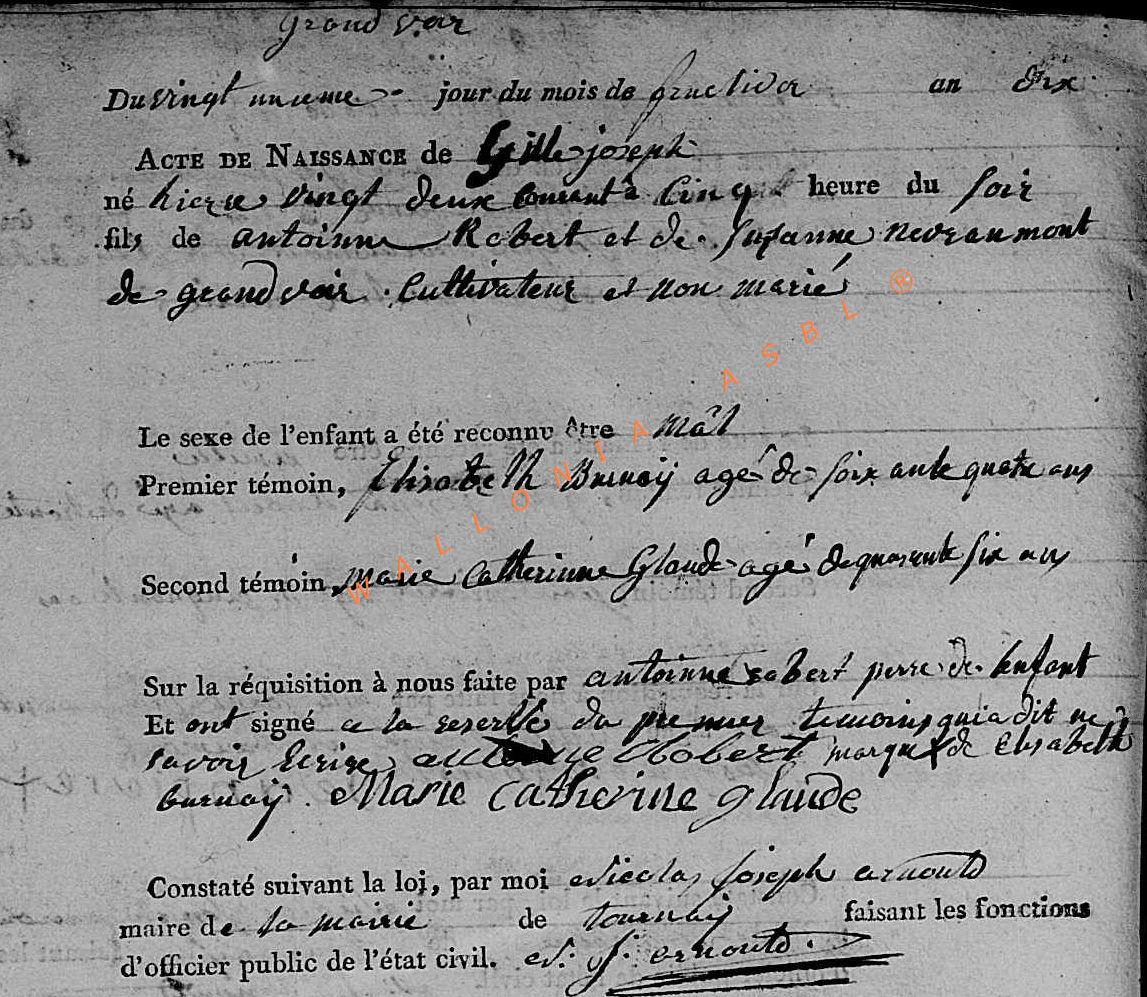 grand voir
Du vingt unieme jour du mois de fructidor an dix
ACTE DE NAISSANCE de Gille joseph
né hiere vingt deux courant à Cinq heure du soir
fils de antoinne Robert et de Suzanne neveraumont
de grand voir Cultivateur et non marié
Le sexe de l'enfant a été reconnu être mâl
Premier témoin, Elisabelh Burnoij agé de soixante quatre ans
Second témoin, marie Catherinne Glaude agé de quarante six ans
Sur la réquisition à nous faite par antoinne robert perre de lenfant
Et ont signé a la reserve du premier temoins qui a dit ne
savoir Ecrire antoine Robert marque de Elisabeth
burnoij. Marie catherine glaude
Constaté suivant la loi, par moi Nicolas Joseph arnould
maire de la mairie de tournaij faisant les fonctions
d'officier public de l'état civil. N. J. arnould.
WALLONIA ASBL ®